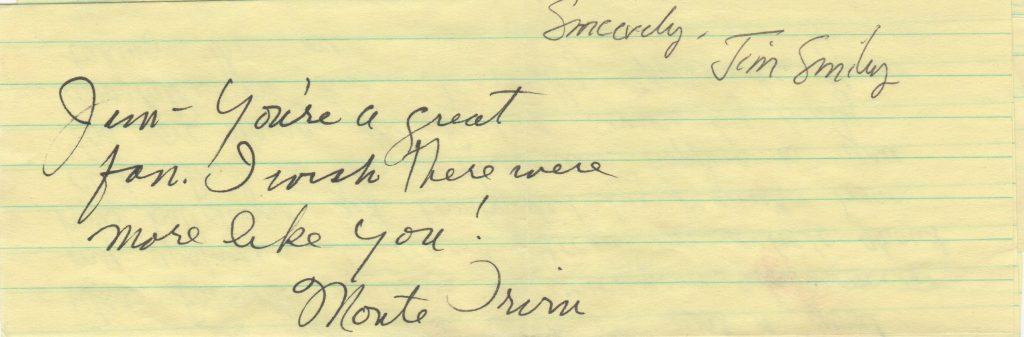 Sincerely,
Jim Smiley
Jim- You're a great
fan. I wish there were
more like you!
Monte Irvin